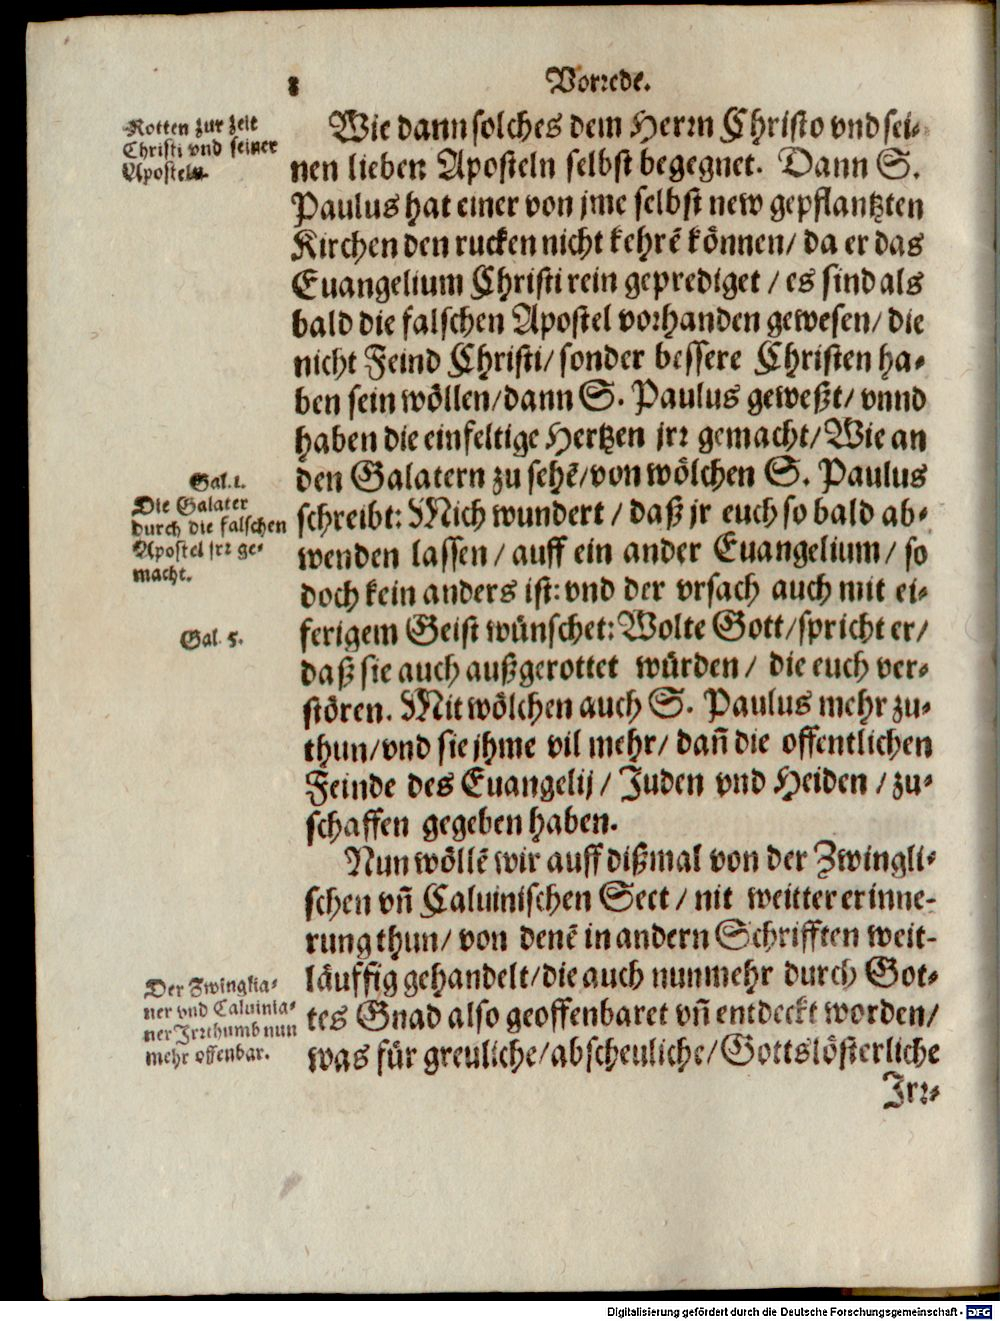 8 Vorrede.
Rotten zur zeit
Christi vnd seiner
Aposteln.
Wie dann solches dem Herrn Christo vnd sei-
nen lieben Aposteln selbst begegnet. Dann S.
Paulus hat einer von jme selbst new gepflantzten
Kirchen den rucken nicht kehrē können/ da er das
Euangelium Christi rein geprediget / es sind als
bald die falschen Apostel vorhanden gewesen/ die
nicht Feind Christi/ sonder bessere Christen ha-
ben sein wöllen/dann S. Paulus geweßt/ vnnd
haben die einfeltige Hertzen jrr gemacht/ Wie an
Gal. 1.
Die Galater
durch die falschen
Apostel jrr ge-
macht.
den Galatern zu sehē/von wölchen S. Paulus
schreibt: Mich wundert / daß jr euch so bald ab-
wenden lassen / auff ein ander Euangelium / so
doch kein anders ist: vnd der vrsach auch mit ei-
Gal. 5.
ferigem Geist wünschet: Wolte Gott/spricht er/
daß sie auch außgerottet würden / die euch ver-
stören. Mit wölchen auch S. Paulus mehr zu-
thun/vnd sie jhme vil mehr/ dañ die offentlichen
Feinde des Euangelij / Juden vnd Heiden / zu-
schaffen gegeben haben.
Nun wöllē wir auff dißmal von der Zwingli-
schen vñ Caluinischen Sect / nit weitter erinne-
rung thun/ von denē in andern Schrifften weit-
Der Zwinglia-
ner vnd Caluinia-
ner Jrrthumb nun
mehr offenbar.
läuffig gehandelt/die auch nunmehr durch Got-
tes Gnad also geoffenbaret vñ entdeckt worden/
was für greuliche/abscheuliche/Gottslösterliche
Jrr-
Digitalisierung gefördert durch die Deutsche Forschungsgemeinschaft - DFG